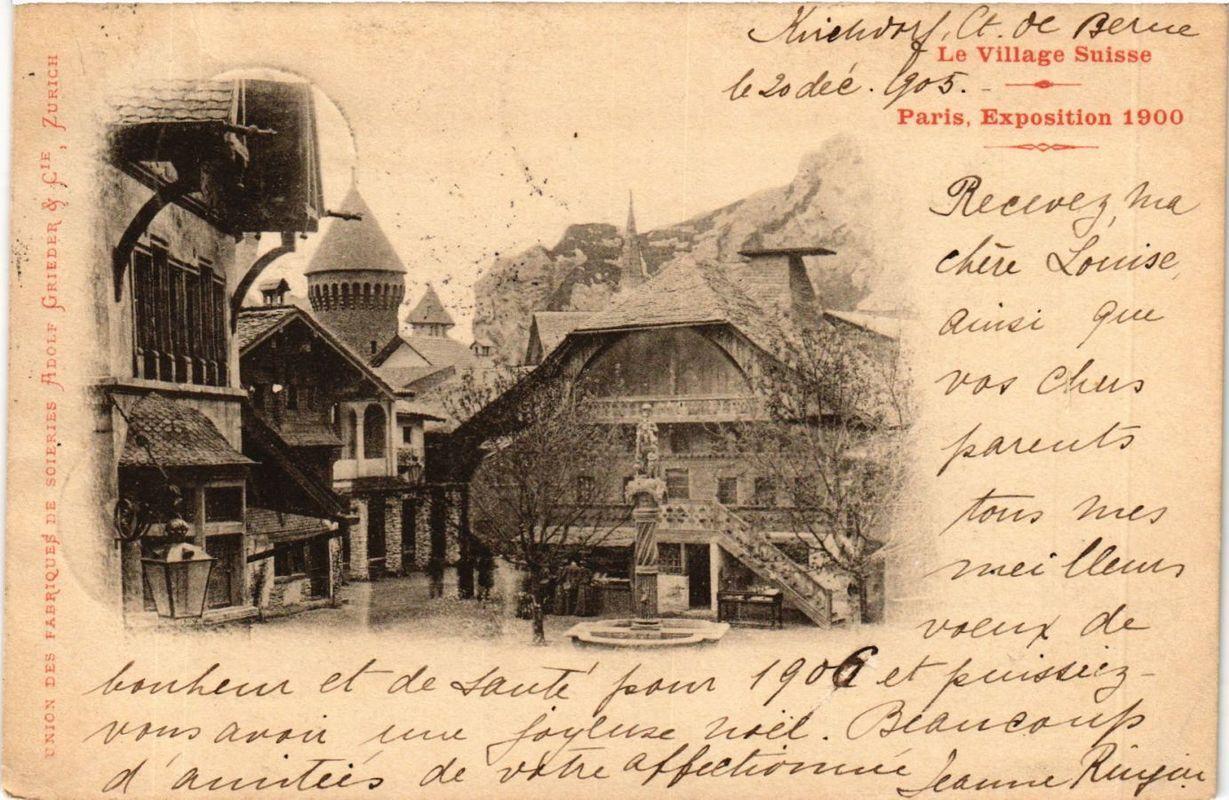 Kirchdorf, Ct. de Berne
Le Village Suisse
le 20 déc. 905.
Paris, Exposition 1900
UNION DES FABRIQUES DE SOIERIES ADOLF GRIEDER & CIE, ZURICH
Recevez, ma
chère Louise,
ainsi que
vos chers
parents
tous mes
meilleurs
voeux de
bonheur et de santé pour 1906 et puissiez-
vous avoir une joyeuse noël. Beaucoup
d'amitiés de votre affectionnée Jeanne